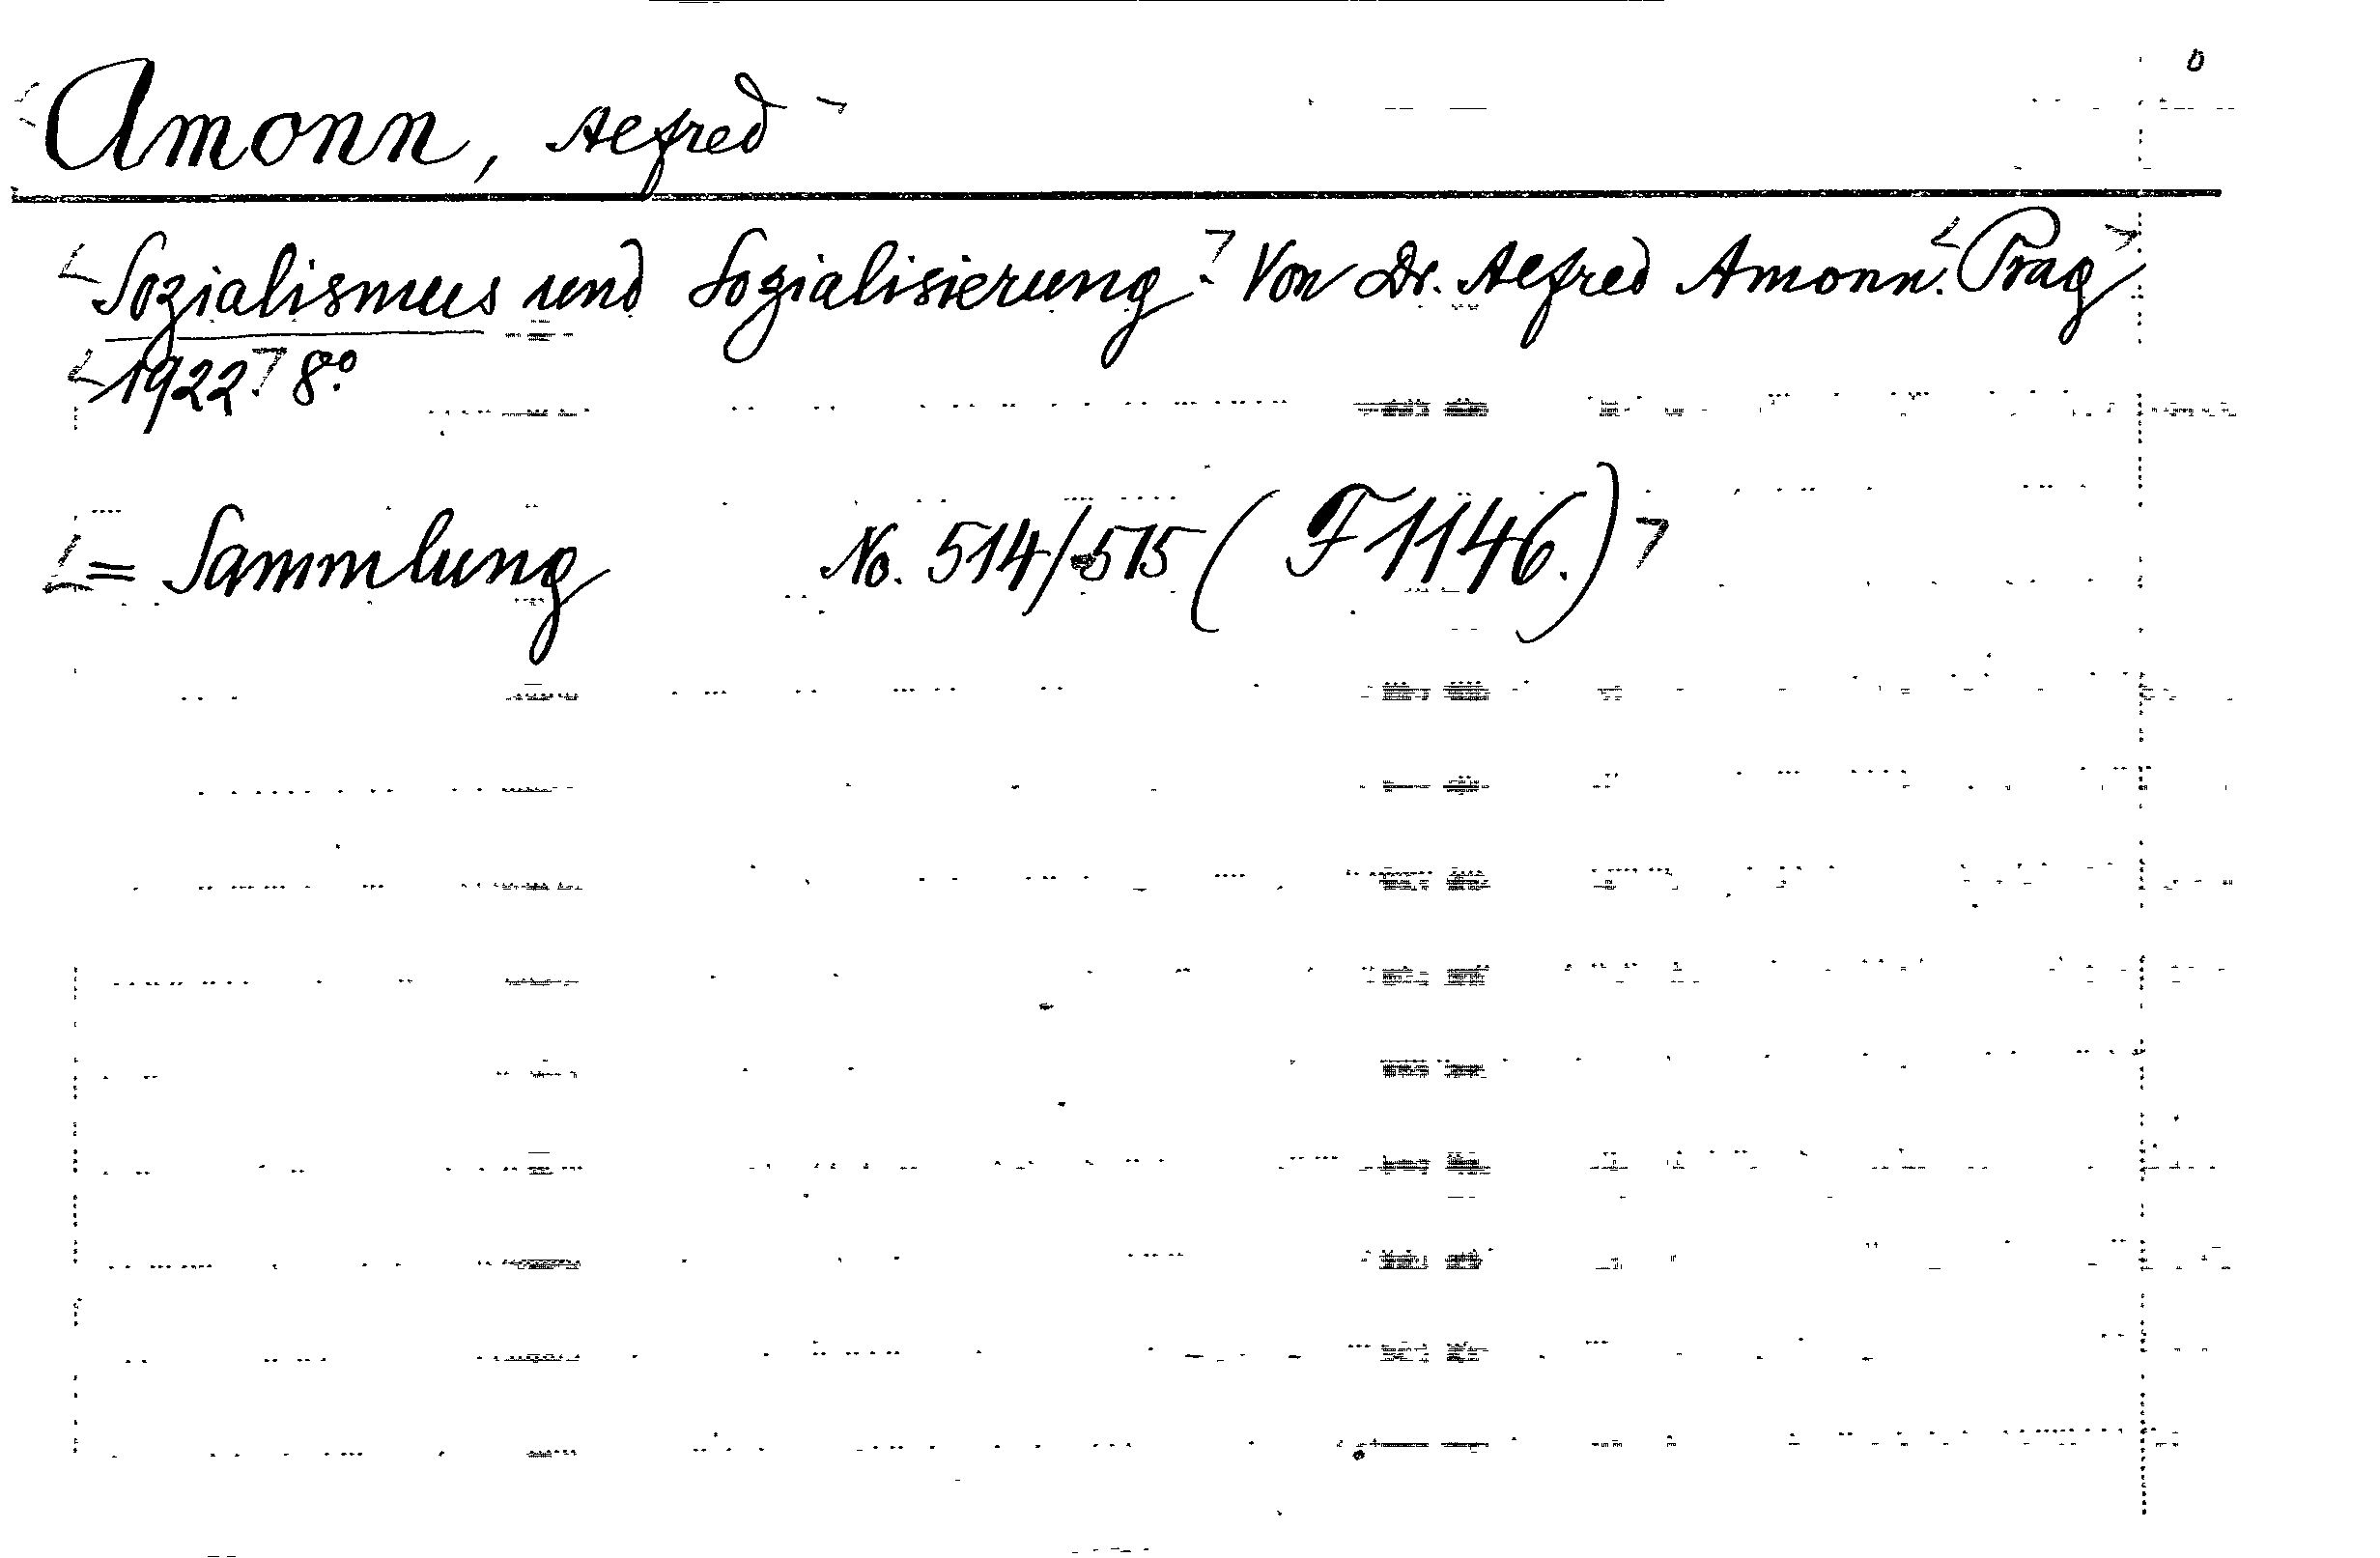 Amonn, Alfred
Sozialismus und Sozialisierung. Von Dr. Alfred Amonn. Prag
1922. 8°.
= Sammlung No. 514/515 (F 1146.)